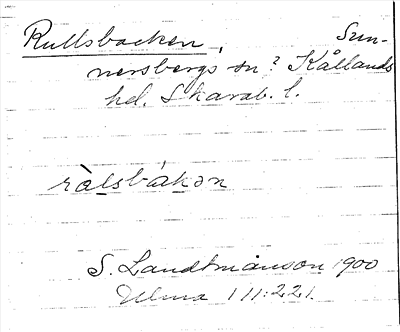 Rullsbacken, Sun-
nersbergs sn? Kållands
hd. Skarab. l.
ràlsbákən
S. Landtmanson 1900
Ulma 111:221.